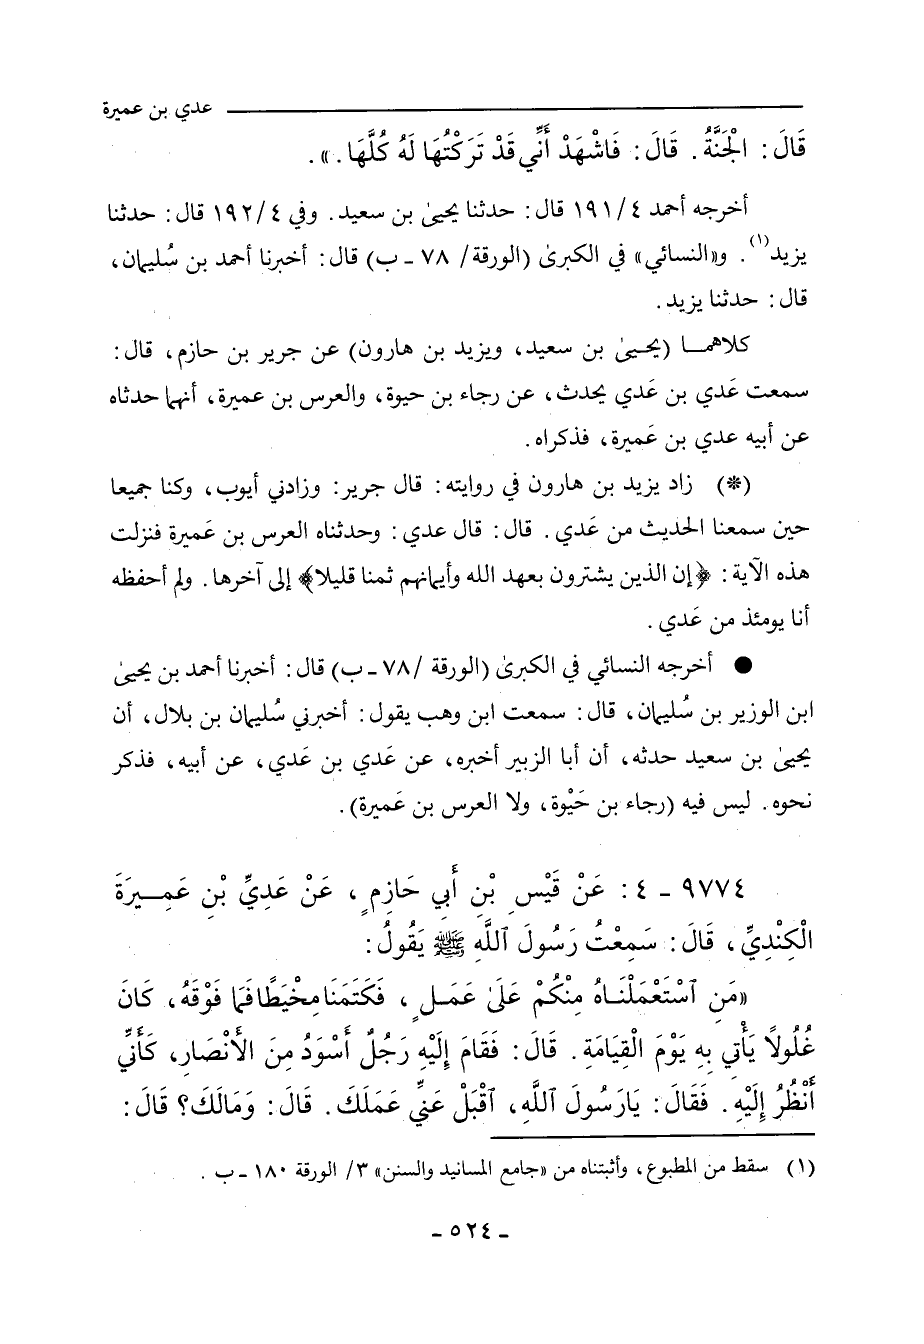 عدي بن عميرة
قَالَ: الْجَنَّةُ. قَالَ: فَاشْهَدْ أَنِّي قَدْ تَرَكْتُهَا لَهُ كُلَّهَا.».
أخرجه أحمد ٤/ ١٩١ قال: حدثنا يحيىٰ بن سعيد. وفي ٤/ ١٩٢ قال: حدثنا
يزيد(١). و«النسائي» في الكبرىٰ (الورقة/ ٧٨ ـ ب) قال: أخبرنا أحمد بن سُليمان،
قال: حدثنا يزيد.
كلاهمـا (يحيىٰ بن سعيد، ويزيد بن هارون) عن جرير بن حازم، قال:
سمعت عَدي بن عَدي يحدث، عن رجاء بن حيوة، والعرس بن عميرة، أنهما حدثاه
عن أبيه عدي بن عَميرة، فذكراه.
(*) زاد يزيد بن هارون في روايته: قال جرير: وزادني أيوب، وكنا جميعا
حين سمعنا الحديث من عَدي. قال: قال عدي: وحدثناه العرس بن عَميرة فنزلت
هذه الآية: ﴿إن الذين يشترون بعهد الله وأيمانهم ثمنا قليلا﴾ إلى آخرها. ولم أحفظه
أنا يومئذ من عَدي.
● أخرجه النسائي في الكبرىٰ (الورقة /٧٨ ـ ب) قال: أخبرنا أحمد بن يحيىٰ
ابن الوزير بن سُليمان، قال: سمعت ابن وهب يقول: أخبرني سُليمان بن بلال، أن
يحيىٰ بن سعيد حدثه، أن أبا الزبير أخبره، عن عَدي بن عَدي، عن أبيه، فذكر
نحوه. ليس فيه (رجاء بن حَيْوة، ولا العرس بن عَميرة).
٩٧٧٤ - ٤: عَنْ قَيْسِ بْنِ أَبي حَازِمٍ، عَنْ عَدِيِّ بْنِ عَمِـيرَةَ
الْكِنْدِيِّ، قَالَ: سَمِعْتُ رَسُولَ ٱللَّهِ ﷺ يَقُولُ:
«مَنِ ٱسْتَعْمَلْنَاهُ مِنْكُمْ عَلَىٰ عَمَلٍ، فَكَتَمَنَا مِخْيَطًا فَمَا فَوْقَهُ، كَانَ
غُلُولاً يَأْتي بِهِ يَوْمَ الْقِيَامَةِ. قَالَ: فَقَامَ إِلَيْهِ رَجُلٌ أَسْوَدُ مِنَ الأَنْصَارِ، كَأَنِّي
أَنْظُرُ إِلَيْهِ. فَقَالَ: يَارَسُولَ ٱللَّهِ، ٱقْبَلْ عَنِّي عَمَلَكَ. قَالَ: وَمَالَكَ؟ قَالَ:
(١) سقط من المطبوع، وأثبتناه من «جامع المسانيد والسنن» ٣/ الورقة ١٨٠ ـ ب.
- ٥٢٤ -